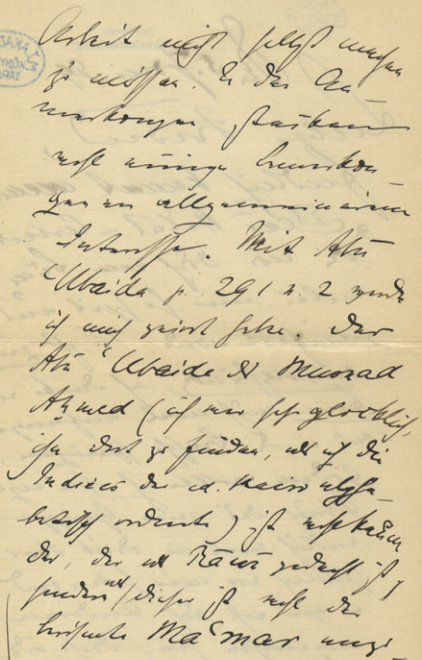 Arbeit nicht selbst machen
zu müssen. In den An
merkungen stecken
wohl einige Bemerkun
gen von allgemeinerem
Interesse. Mit Abū
ʿUbaida p. 291 n. 2 werde
ich mich geirrt haben. Der
Abū ʿUbaida des Musnad
Aḥmed (ich war sehr glücklich,
ihn dort zu finden, als ich die
Indices der ed. Kairo alpha
betisch ordnete) ist wohl kaum
der, der als Rāwī gedacht ist,
sondern dieser ist wohl der
berühmte Maʿmar